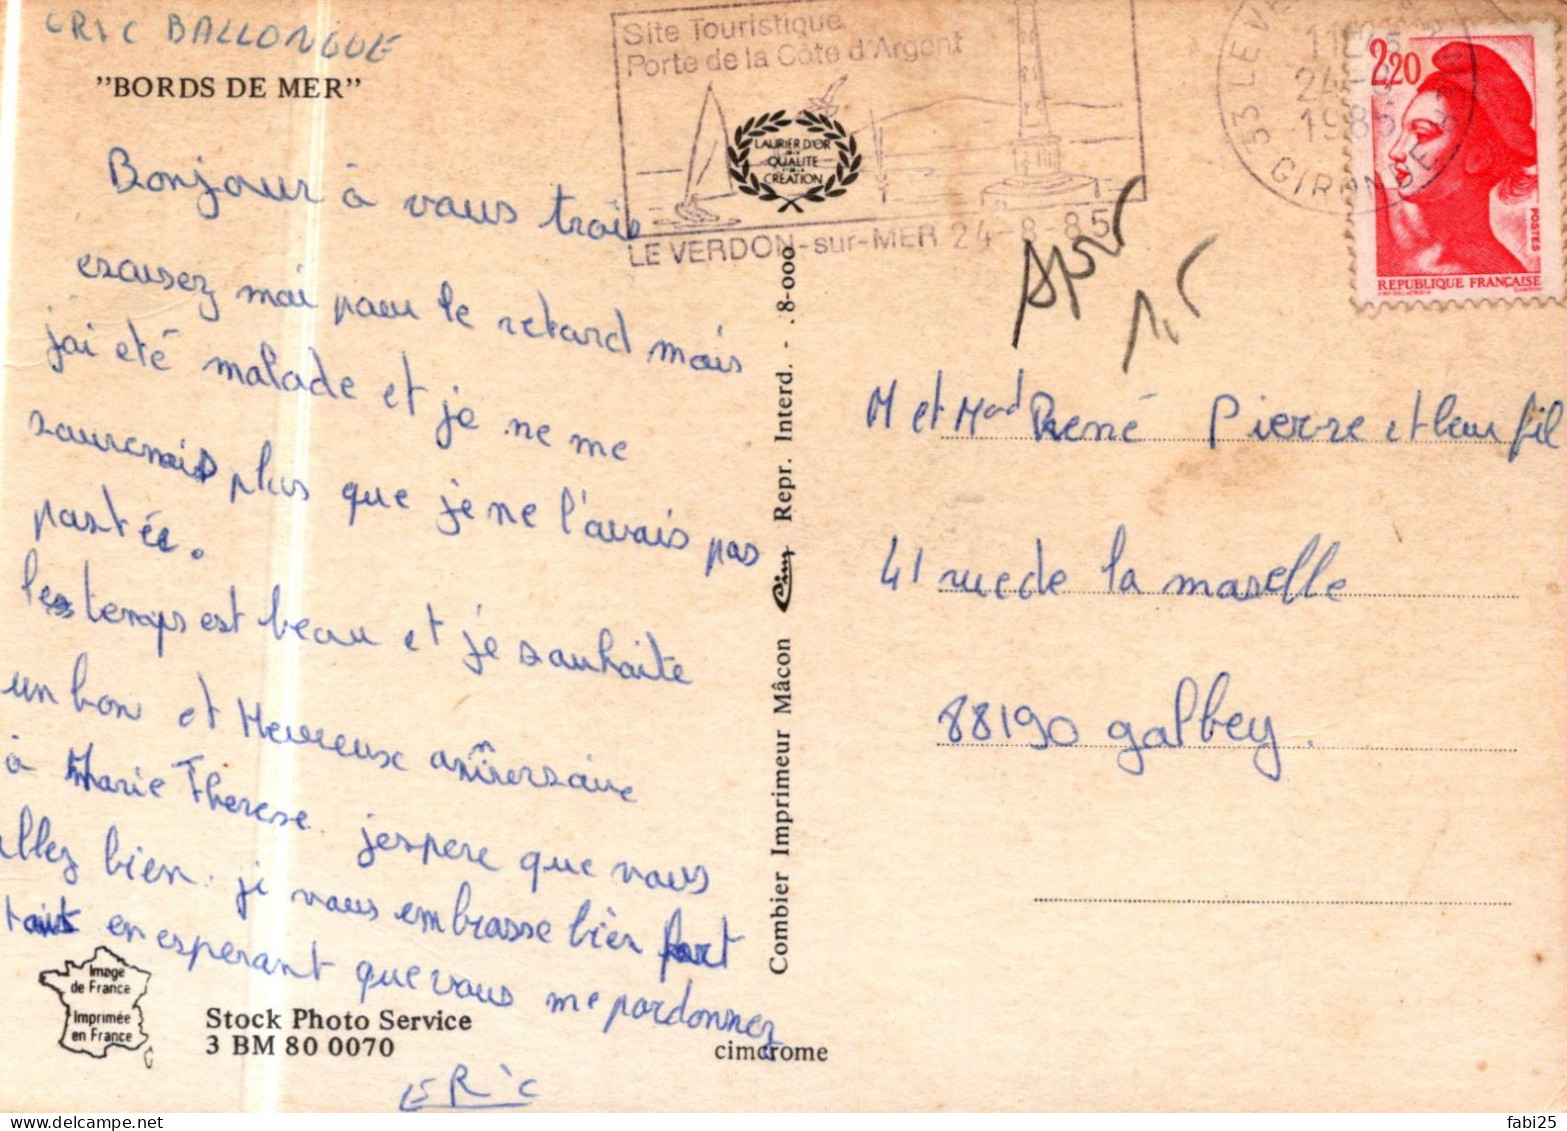 ERIC BALLONGUE
"BORDS DE MER"
Bonjour à vous trois
escusez moi pour le retard mais
j'ai eté malade et je ne me
sourenais plus que je ne l'avais pas
postée.
les temps est beau et je souhaite
un bon et Heureux anniversaire
à Marie Therese. jespere que vous
allez bien. je vous embrasse bien fort
tous en esperant que vous me pardonnez
ERic
Image
de France
Imprimée
en France
Stock Photo Service
3 BM 80 0070
cimcrome
Combier Imprimeur Mâcon Cim Repr. Interd. - . 8-000
LAURIER D'OR
DE LA
QUALITE
CRÉATION
Site Touristique
Porte de la Côte d'Argent
LE VERDON-sur-MER 24-8-85
33 LE VE
24-8
1985
GIRONDE
2,20
POSTES
REPUBLIQUE FRANÇAISE
M et Mad René Pierre et leur fil
41 rue de la moselle
88190 golbey.
fabi25